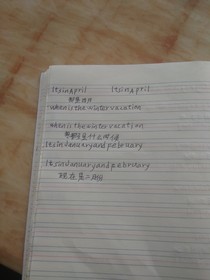 Itsin April Itsin April
whenisthewintervacation
whenisthewintervacation
ItsinJanuaryandpebruary
ItsinJanuaryandpebruary
现在是二月份